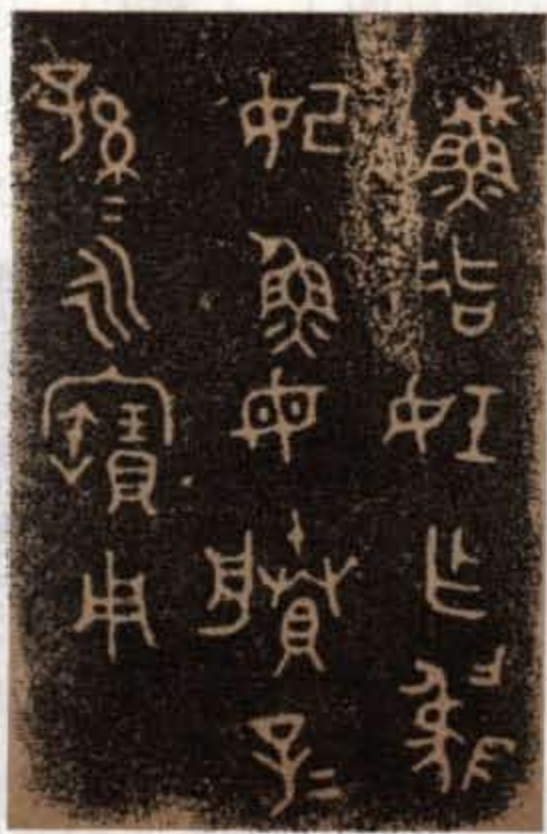 穌冶妊乍虢
妃魚母賸子=
孫=永寶用